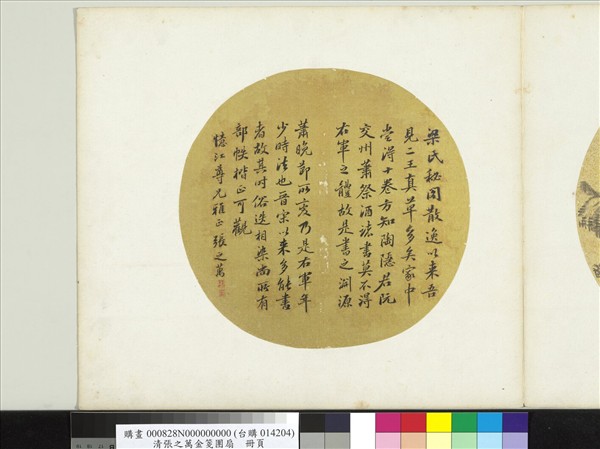 梁氏秘閣散逸以來吾
見二王真草多矣家中
嘗得十卷方知陶隱居阮
交州蕭祭酒諸書莫不得
右軍之體故是書之淵源
蕭晚節所變乃是右軍年
少時法也晉宋以來多能書
者故其時俗迭相染尚所有
部帙楷正可觀
憶江尊兄雅正 張之萬
購畫 000828N000000000 (台購 014204)
清張之萬金箋團扇 冊頁